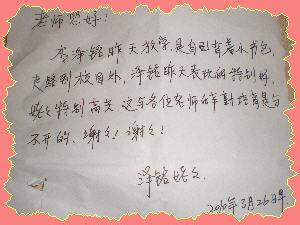 老师您好:
李泽铭昨天放学是自己背着小书包
走路到校外,泽铭昨天表现的特别好,
姥々特别高兴。这与各位老师的辛勤培育是分
不开的,谢々!谢々!
泽铭姥々
2010年3月26日早